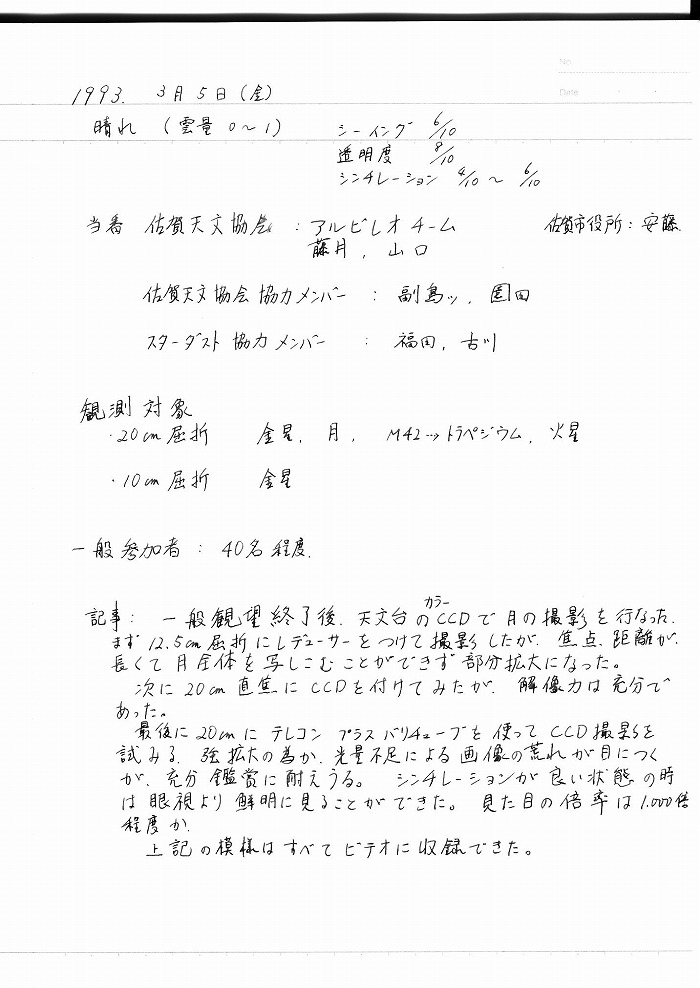 No.
Date
1993. 3月5日(金)
晴れ (雲量 0〜1) シーイング 6/10
透明度 8/10
シンチレーション 4/10 〜 6/10
当番 佐賀天文協会 : アルビレオチーム 佐賀市役所:安藤.
藤月, 山口
佐賀天文協会協力メンバー : 副島ッ, 園田
スターダスト協力メンバー : 福田, 古川
観測対象
・20cm屈折 金星, 月, M42→トラペジウム, 火星
・10cm屈折 金星
一般参加者: 40名程度.
記事: 一般観望終了後、天文台のカラーCCDで月の撮影を行なった.
まず12.5cm屈折にレデューサーをつけて撮影したが、焦点距離が、
長くて月全体を写しこむことができず部分拡大になった。
次に20cm直焦にCCDを付けてみたが、解像力は充分で
あった。
最後に20cmにテレコンプラスバリチューブを使ってCCD撮影を
試みる. 強拡大の為か、光量不足による画像の荒れが目につく
が、充分鑑賞に耐えうる。 シンチレーションが良い状態の時
は眼視より鮮明に見ることができた。 見た目の倍率は1,000倍
程度か.
上記の模様はすべてビテオに収録できた。